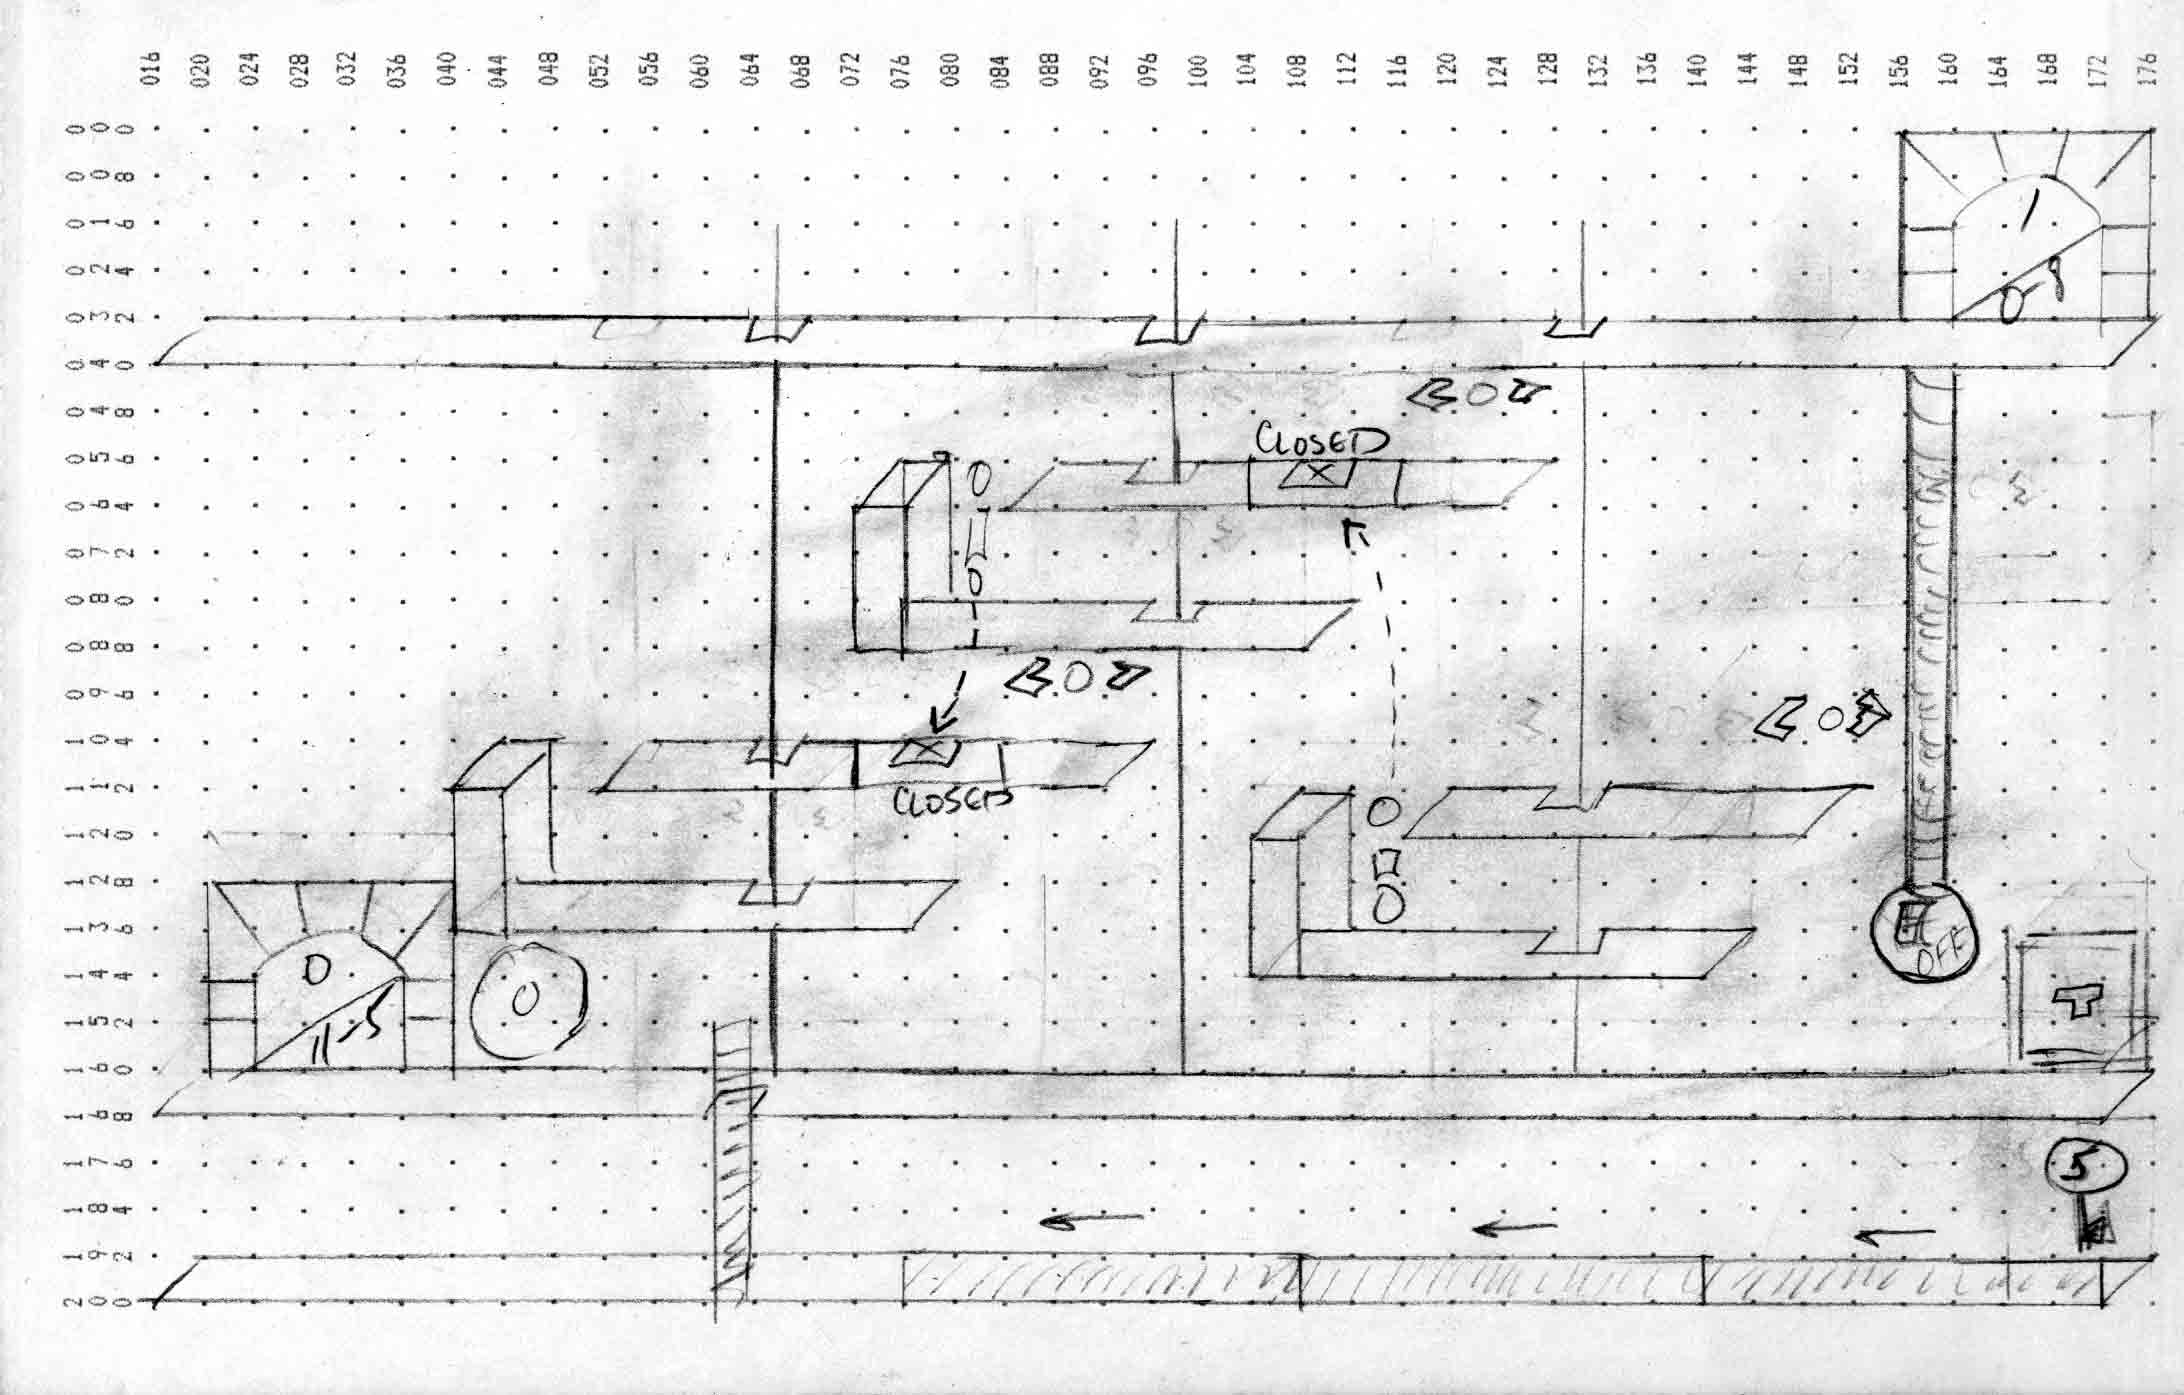 016 020 024 028 032 036 040 044 048 052 056 060 064 068 072 076 080 084 088 092 096 100 104 108 112 116 120 124 128 132 136 140 144 148 152 156 160 164 168 172 176
000
008
016
024
032
040
048
056
064
072
080
088
096
104
112
120
128
136
144
152
160
168
176
184
192
200
1
0-8
CLOSED
CLOSED
OFF
0
11-5
0
T
5